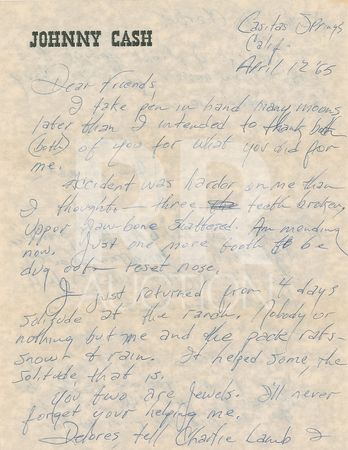 JOHNNY CASH
Casitas Springs
Calif.
April 12 '65
Dear Friends
I take pen in hand many moons
later than I intended to thank both
(both) of you for what you did for
me.
Accident was harder on me than
I thought - three teeth broken,
Upper Jaw-bone shattered. Am mending
now. Just one more tooth to be
dug out - reset nose.
I just returned from 4 days
solitude at the ranch. Nobody or
nothing but me and the pack rats -
snow & rain. It helped some, the
solitude that is.
You two are jewels. I'll never
forget your helping me.
Delores tell Charlie Lamb I